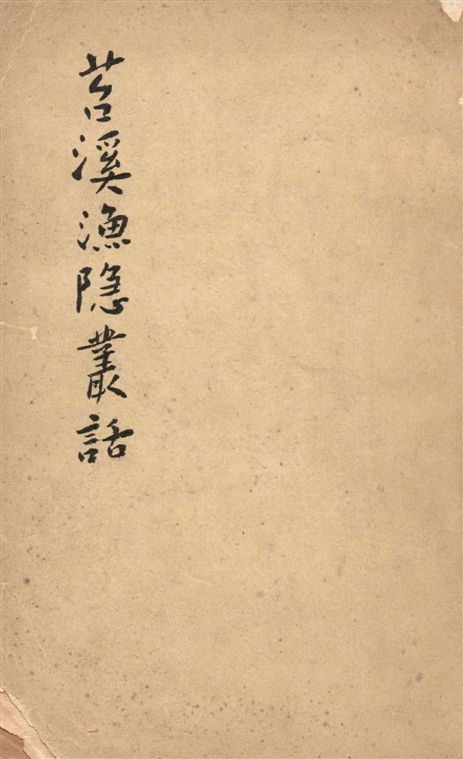 苕溪漁隐叢話